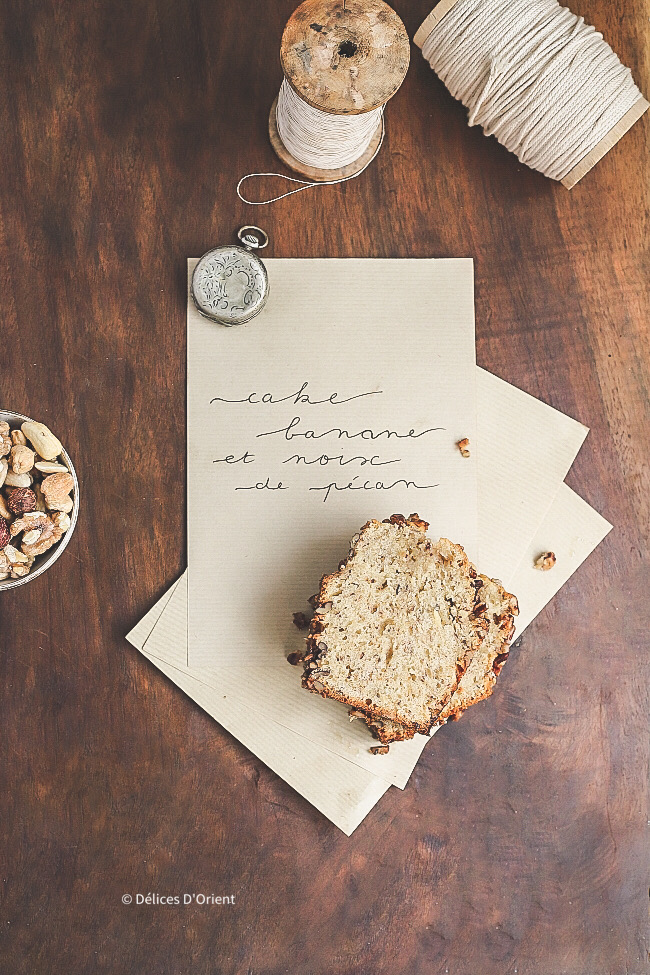 cake
banane
et noix
de pécan
© Délices D'Orient